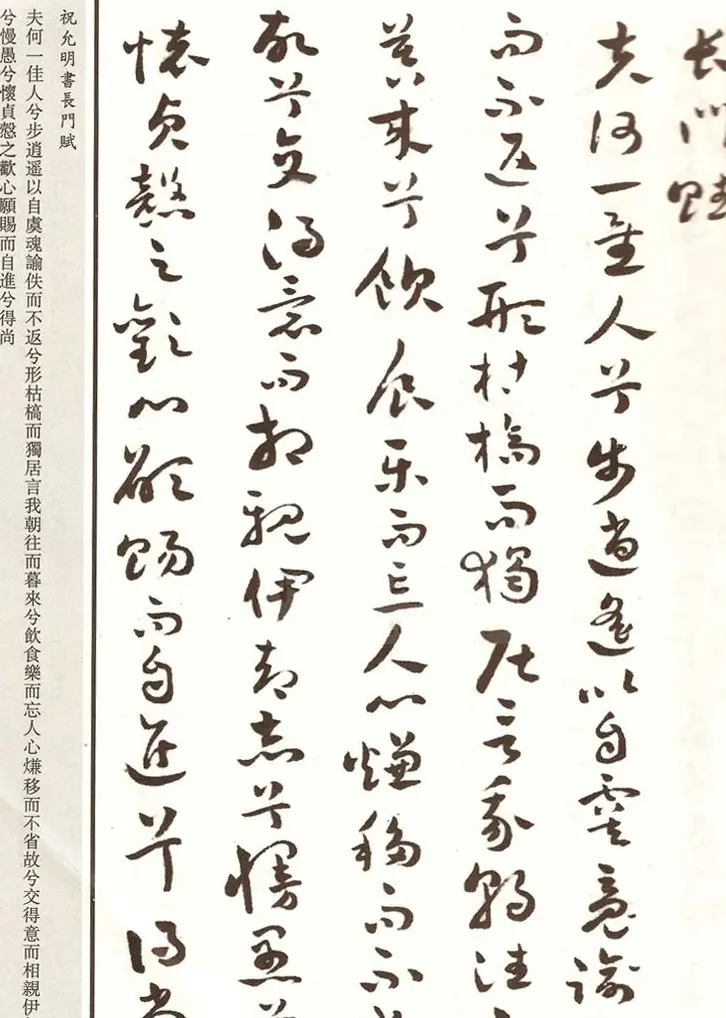 長門賦
夫何一佳人兮步逍遥以自虞魂諭
而不返兮形枯槁而獨居言我朝往
暮来兮飲食樂而忘人心熑移而不
故兮交得意而相親伊予志兮慢愚
懷貞愨之歡心願賜而自進兮得尚
祝允明書長門賦
夫何一佳人兮步逍遥以自虞魂諭佚而不返兮形枯槁而獨居言我朝往而暮來兮飲食樂而忘人心熑移而不省故兮交得意而相親伊
兮慢愚兮懷貞愨之歡心願賜而自進兮得尚